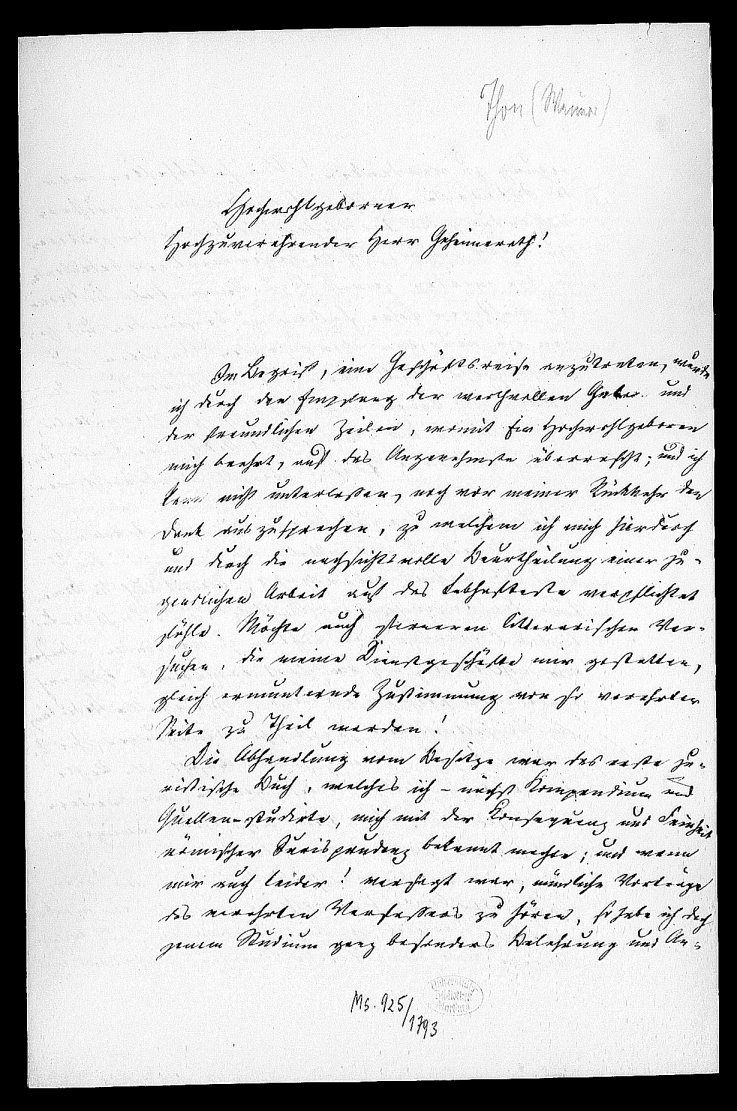 Thon (Weimar)
Hochwohlgeborner
Hochzuverehrender Herr Geheimerath!
Im Begriff, eine Geschäftsreise anzutreten, wurde
ich durch den Empfang der werthvollen Gabe und
der freundlichen Zeilen, womit Ew Hochwohlgeboren
mich beehrt, auf das Angenehmste überrascht; und ich
kann nicht unterlassen, noch vor meiner Rückkehr den
Dank auszusprechen, zu welchem ich mich hierdurch
und durch die nachsichtsvolle Beurtheilung einer ju-
gendlichen Arbeit auf das Lebhafteste verpflichtet
fühle. Möchte auch ferneren litterarischen Ver-
suchen, die meine Dienstgeschäfte mir gestatten,
gleich ermunternde Zustimmung von so verehrter
Seite zu Theil werden!
Die Abhandlung vom Besitze war das erste ju-
ristische Buch, welches ich - nächst Kompendium und
Quellen - studirte, mich mit der Konsequenz und Feinheit
römischer Jurisprudenz bekannt machte; und wenn
mir auch leider! versagt war, mündliche Vorträge
des verehrten Verfassers zu hören, so habe ich doch
jenem Studium ganz besonders Belehrung und An-
Ms. 925/1793